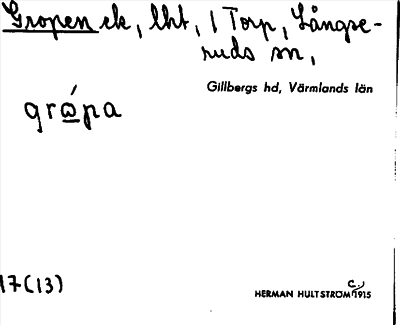 Gropen ek, lht, 1 Torp, Långse-
ruds sn,
Gillbergs hd, Värmlands län
grώpa
17(13)
HERMAN HULTSTRÖM c.) 1915